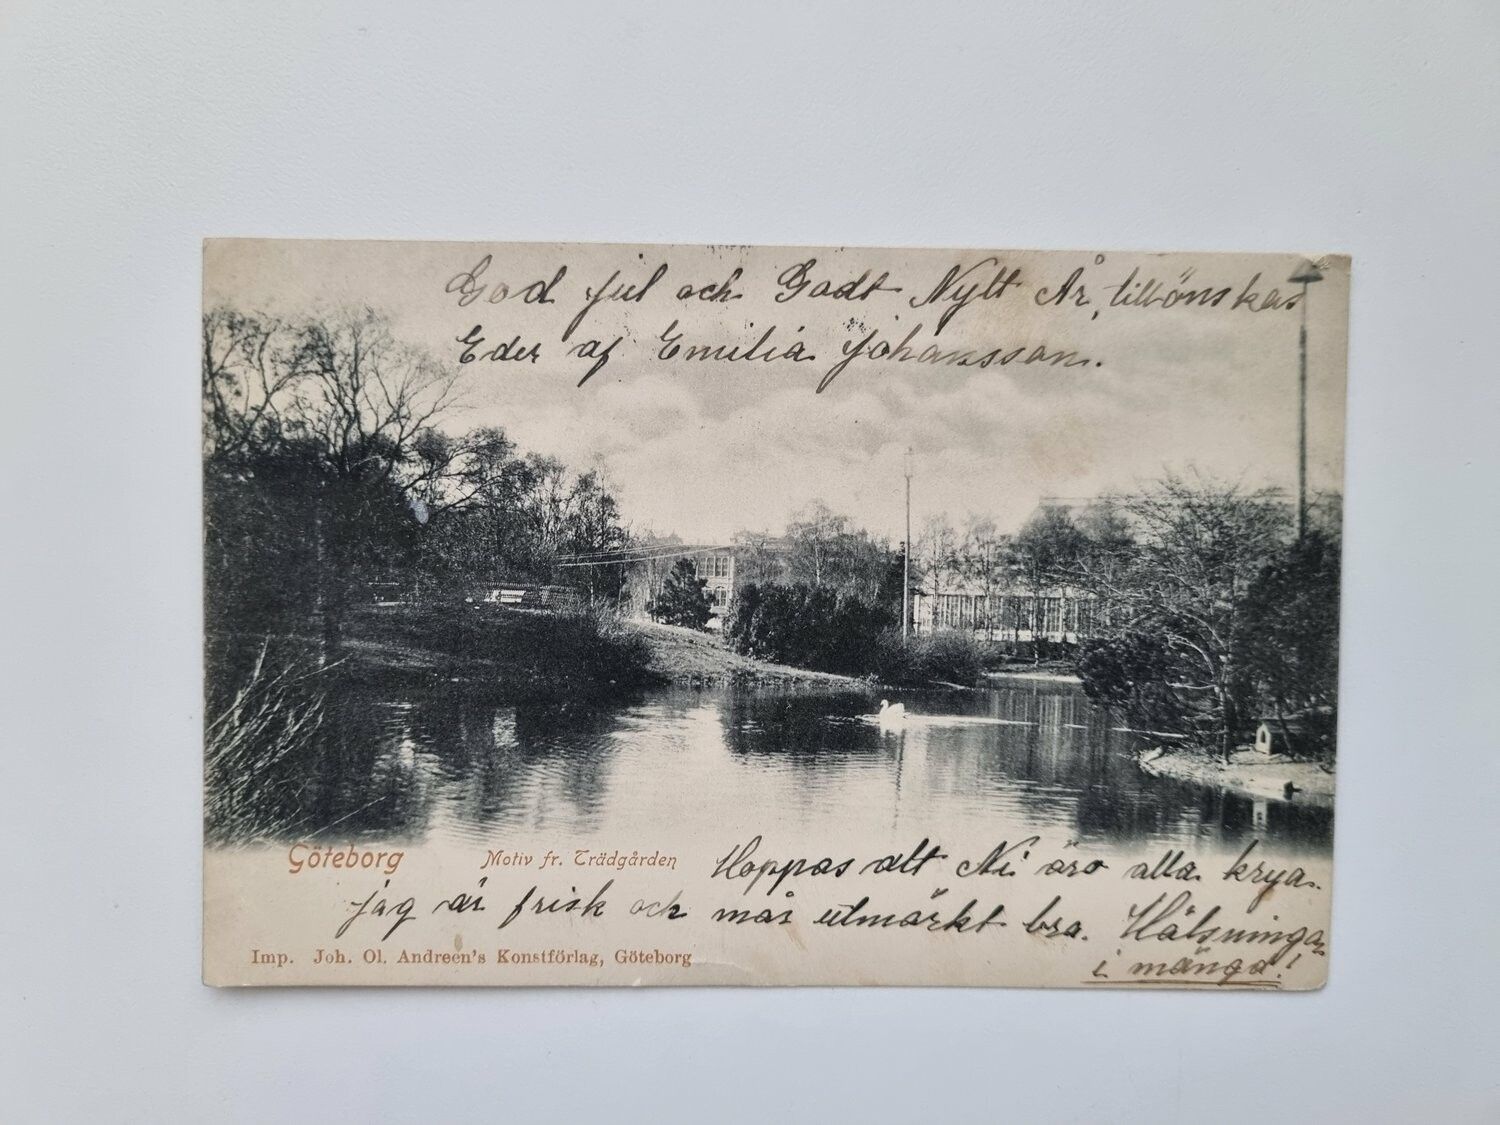 God jul och Godt Nytt År, tillönskas
Eder af Emilia Johansson.
Göteborg Motiv fr. Trädgården Hoppas att Ni äro alla krya.
jag är frisk och mår utmärkt bra. Hälsningar
i mängd!
Imp. Joh. Ol. Andreen's Konstförlag, Göteborg